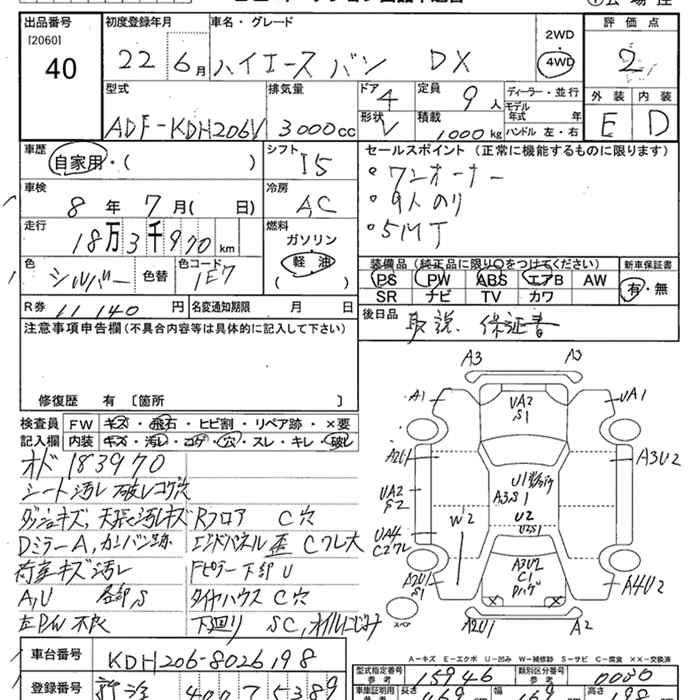 出品番号 初度登録年月 車名・グレード 2WD 評価点
[2060] 22 年 6月 ハイエース バン DX 4WD 2
40
型式 排気量 ドア 4 定員 9人 ディーラー・並行 外装 内装
ADF-KDH206V 3000cc 形状 V 積載 1000kg モデル年式 年 E D
ハンドル 左・右
車歴 自家用・( ) シフト I5 セールスポイント(正常に機能するものに限ります)
車検 8年 7月( 日) 冷房 AC ・ワンオーナー
・9人のり
走行 18万3千970km 燃料 ガソリン ・5MT
色 シルバー 色替 色コード 1E7 軽油 ( )
装備品(純正品に限り○をつけてください) 新車保証書
PS PW ABS エアB AW 有・無
SR ナビ TV カワ
R券 11140円 名変通知期限 月 日
後日品 取説、保証書
注意事項申告欄(不具合内容等は具体的に記入して下さい)
修復歴 有 〔箇所 〕
検査員 FW キズ・飛石・ヒビ割・リペア跡・×要
記入欄 内装 キズ・汚レ・コゲ・穴・スレ・キレ・破レ
オド 183970
シート汚レ 破レコゲ穴
Rフロア C穴
Dミラー A, カンバン跡 エンドパネル歪 Cワレ大
荷室キズ汚レ Fピラー下部U
A,U 各部,S タイヤハウス C穴
左PW不良 下廻り SC,
A3 A3
A1 UA2 S1 UA1
A2U1 A3U2
UA2 S2 A3S1
UA4 C2ワレ W2 U2
A2U1 S1 A3U2 C1 A4U2
スペア A2U1 A2
A-キズ E-エクボ U-凹み W-補修跡 S-サビ C-腐食 ××-交換済
車台番号 KDH206-8026198 型式指定番号 参考 15946 類別区分番号 参考
登録番号 400 5389 長さ 469 幅 169 高さ 198